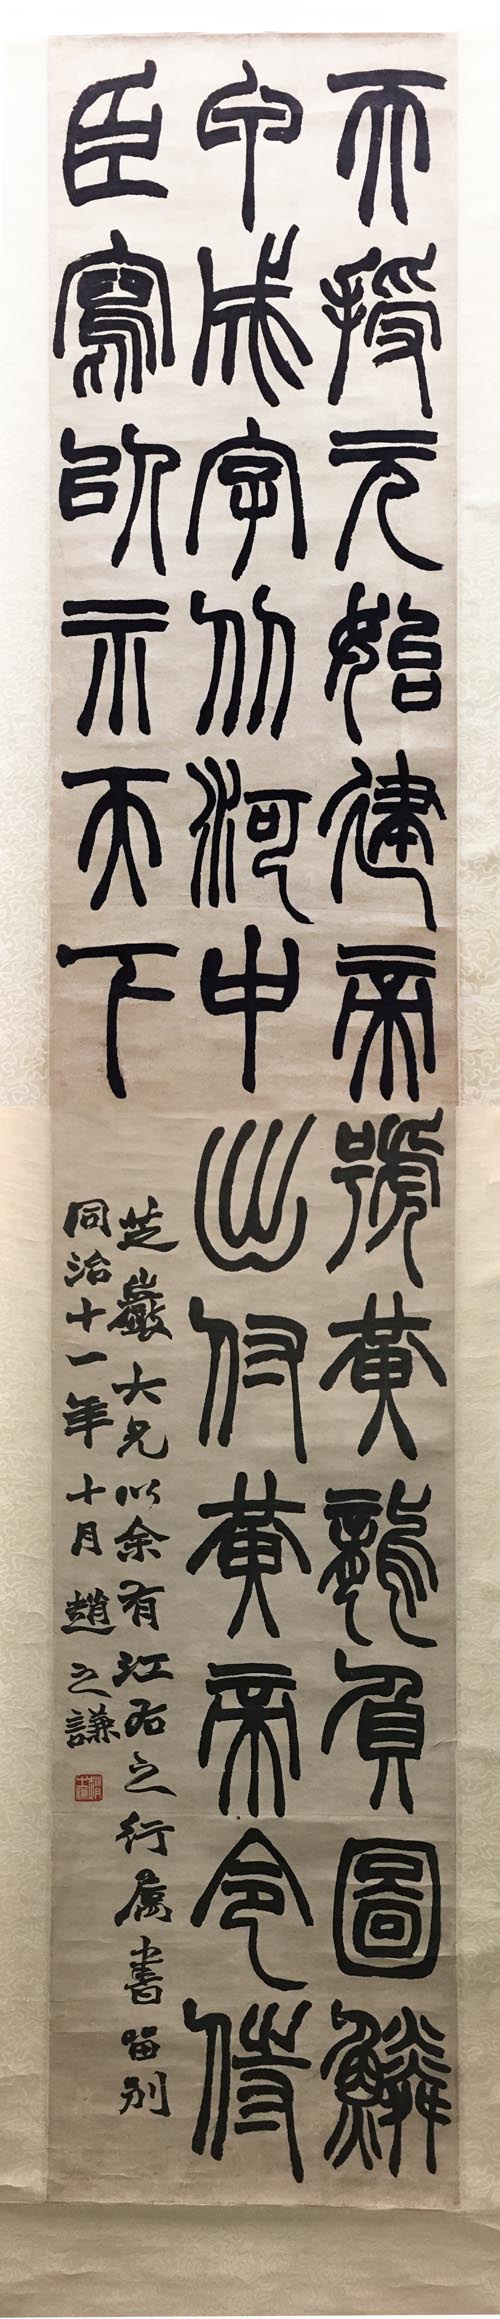 天授元始建帝號黃龍負圖鱗
甲成字从河中出付黃帝令侍
臣寫以示天下
芝巖大兄以余有江右之行属書留別
同治十一年十月趙之謙